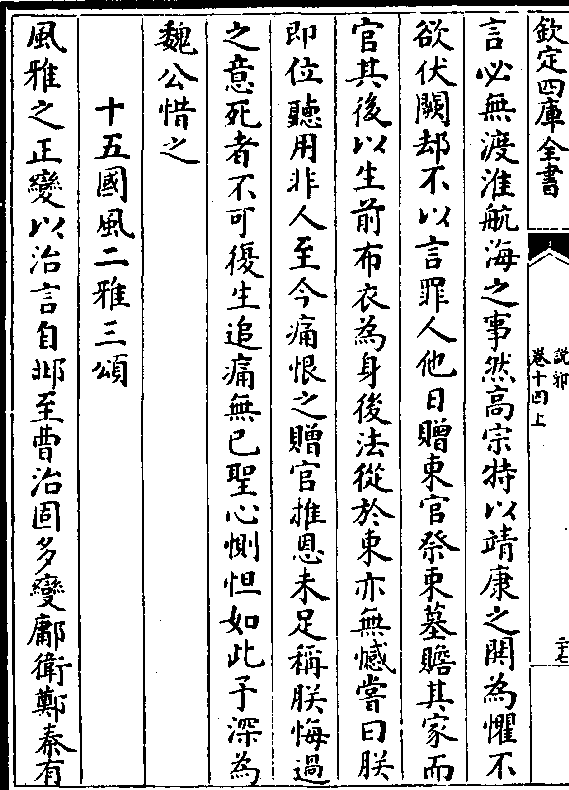 欽定四庫全書
說郛
卷十四上
言必無渡淮航海之事然高宗特以靖康之閧為懼不
欲伏闕却不以言罪人他日贈東官祭東墓贍其家而
官其後以生前布衣為身後法從於東亦無憾嘗曰朕
即位聽用非人至今痛恨之贈官推恩未足稱朕悔過
之意死者不可復生追痛無已聖心惻怛如此予深為
魏公惜之
十五國風二雅三頌
風雅之正變以治言自邶至曹治固多變鄘衛鄭秦有